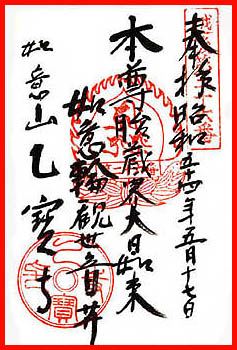 奉拝 昭和五十四年五月十七日
本尊胎蔵界大日如来
如意輪観世音菩薩
如意山乙寶寺